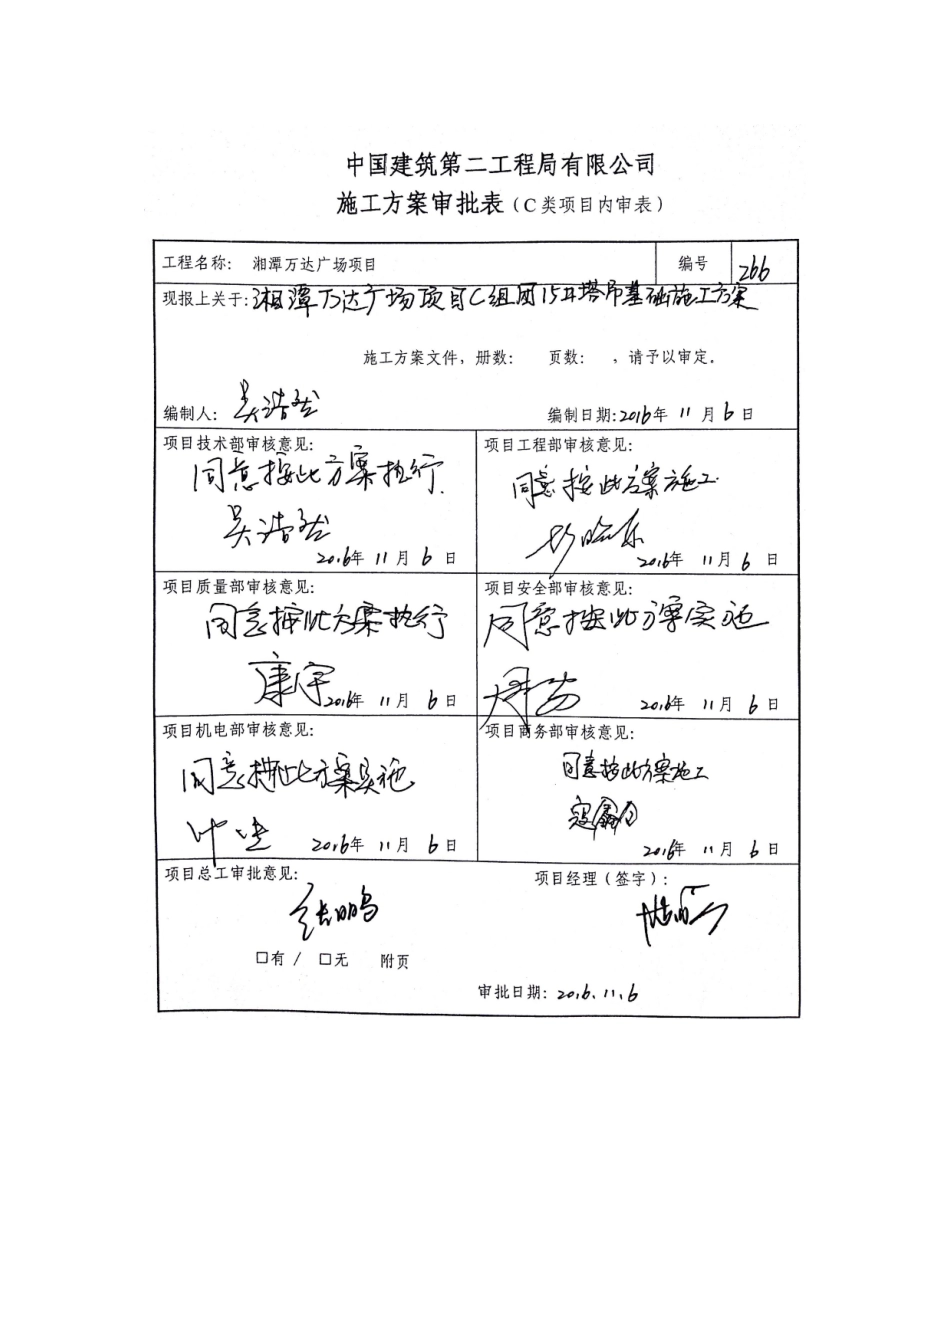 中国建筑第二工程局有限公司
施工方案审批表（C类项目内审表）
工程名称： 湘潭万达广场项目 编号 266
现报上关于：湘潭万达广场项目C组团15#塔吊基础施工方案
施工方案文件，册数： 页数： ，请予以审定。
编制人：吴浩 编制日期：2016年 11 月 6 日
项目技术部审核意见：
同意按此方案执行.
吴浩
2016年 11 月 6 日
项目工程部审核意见：
同意按此方案施工.
2016年 11 月 6 日
项目质量部审核意见：
同意按此方案执行
康宇
2016年 11 月 6 日
项目安全部审核意见：
同意按此方案实施
2016年 11 月 6 日
项目机电部审核意见：
同意按此方案实施
叶
2016年 11 月 6 日
项目商务部审核意见：
同意按此方案施工
2016年 11 月 6 日
项目总工审批意见：
张鹏
□有 / □无 附页
项目经理（签字）：
审批日期：2016.11.6